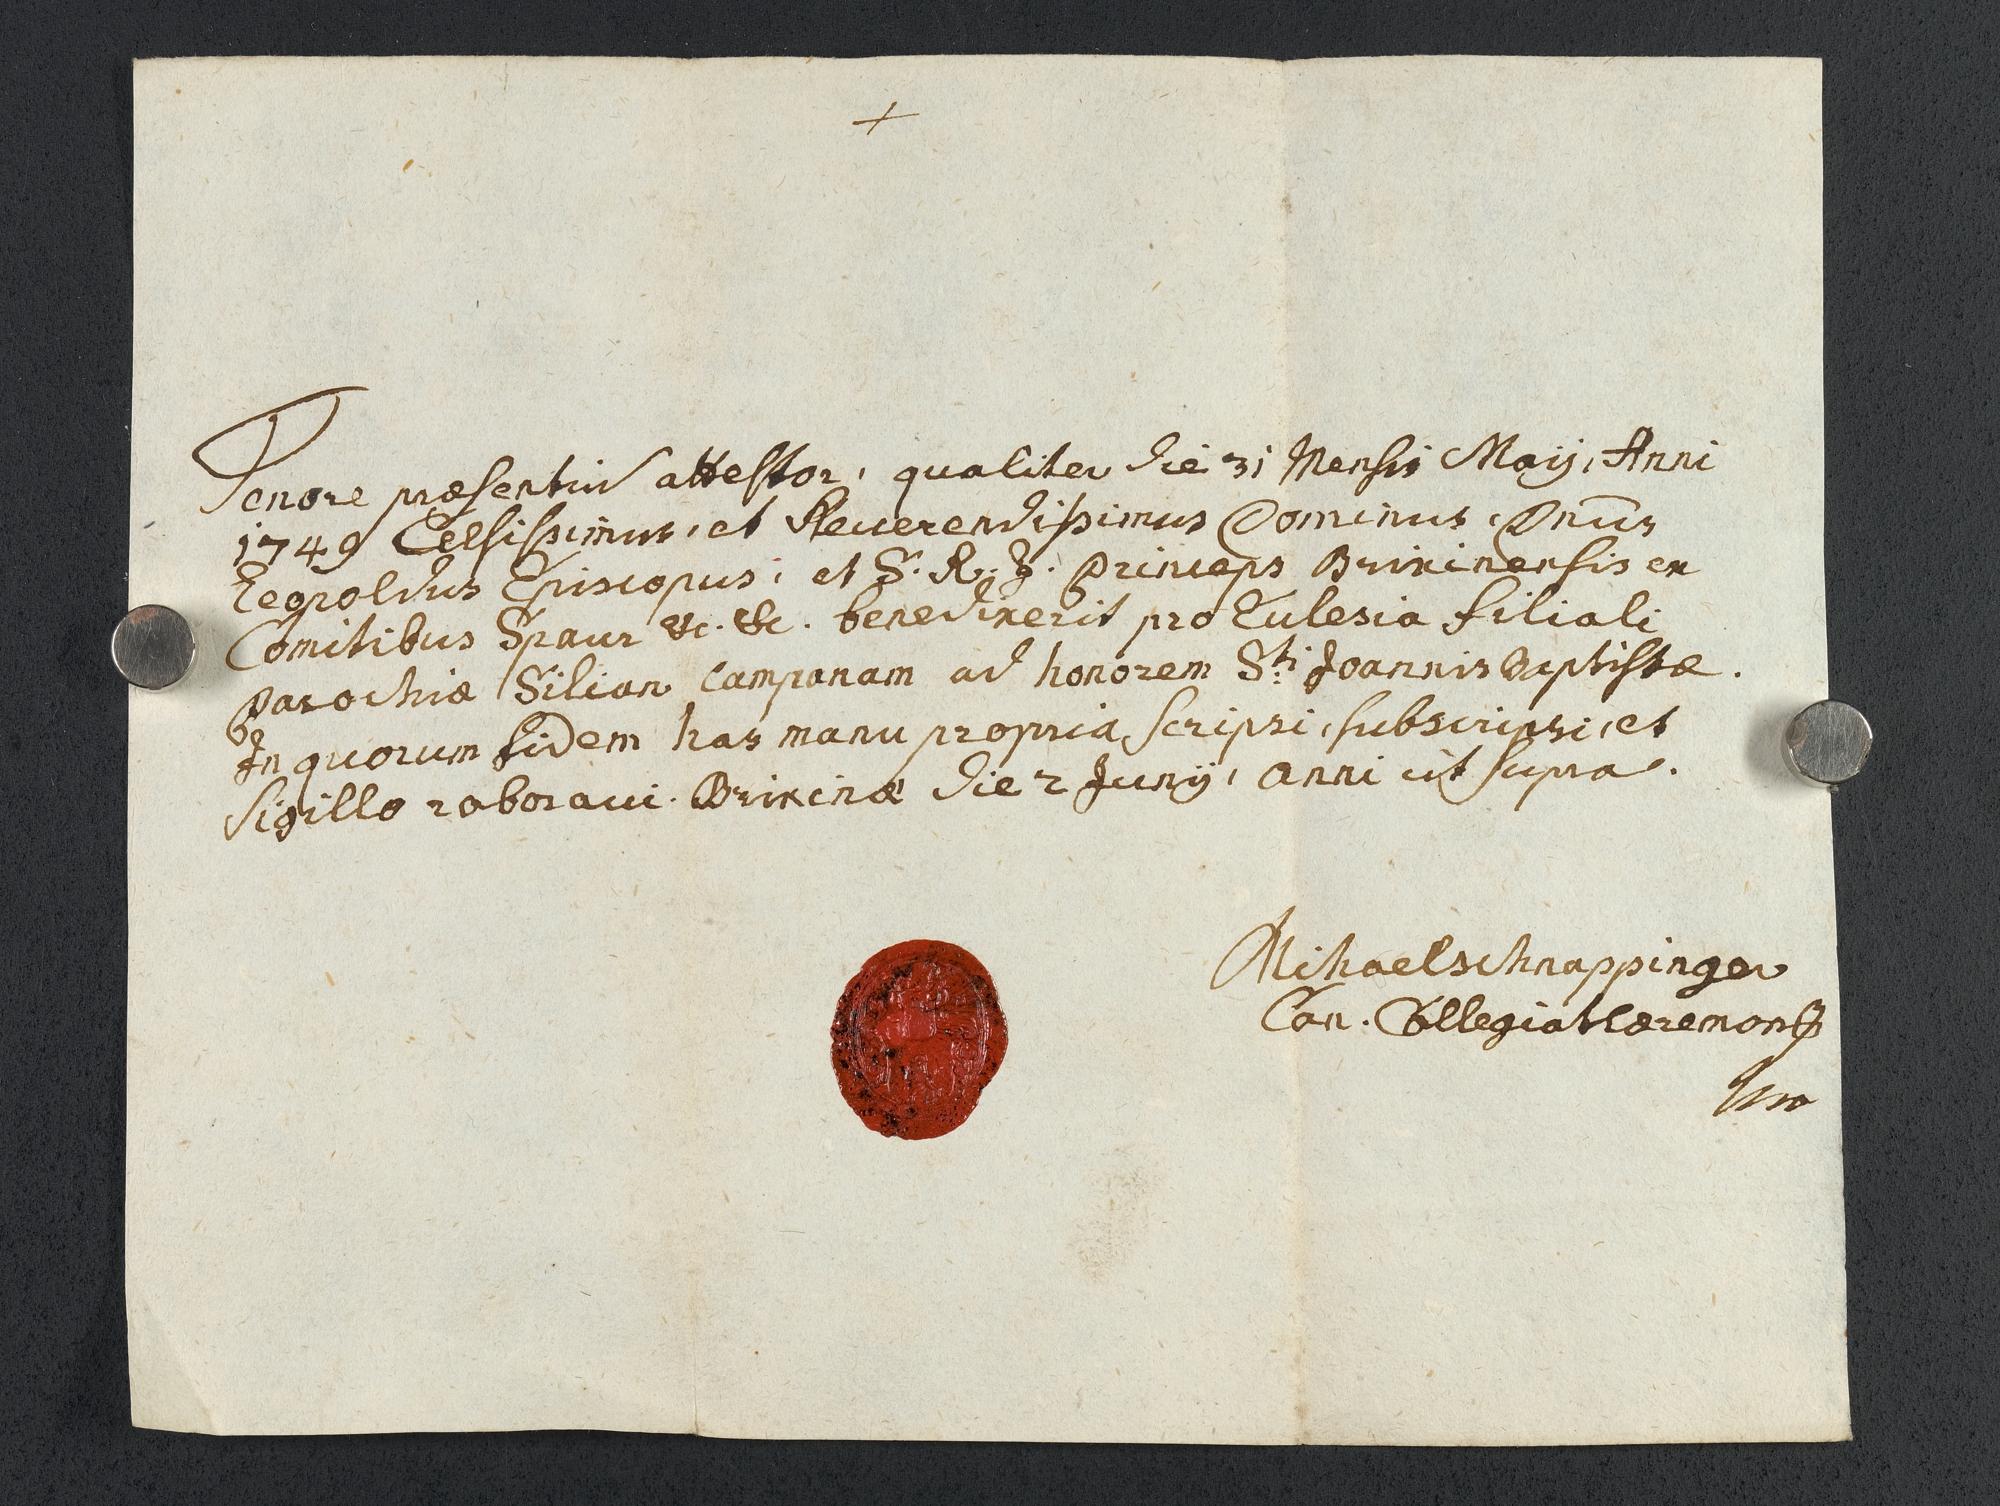 Tenore præsentiu attestor, qualiter die 31 Mensis Maij, Anni
1749 Celsissimus, et Reuerendissimus Dominus, Dnūs
Leopoldus Episcopus, et S. R. J. Princeps Brixinensis ex
Comitibus Spaur &c. &c. benedixerit pro Eclesia filiali
Parochiæ Silian campanam ad honorem S:ti Joannis Baptistæ.
In quorum fidem has manu propria scripsi, subscripsi, et
sigillo roboraui. Brixinæ die 2 Junij, anni ut supra.
Mihael schnappinger
Can. Collegiat Cæremon